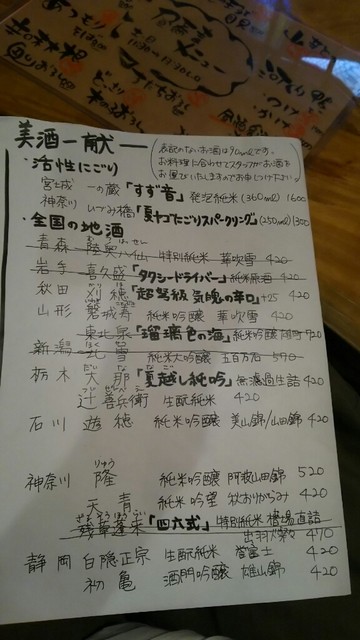 メニュー
美酒一献一
(表記のないお酒は90mlです。
お料理に合わせてスタッフがお酒を
お選びいたしますのでお申しつけ下さい。)
・活性にごり
宮城 一の蔵「すず音」発泡純米(360ml) 1600
神奈川 いづみ橋「夏ヤゴにごりスパークリング」(250ml) 1300
・全国の地酒
青森 陸奥八仙 特別純米 華吹雪 420
岩手 喜久盛「タクシードライバー」純米原酒 420
秋田 刈穂「超弩級 気魄の辛口」+25 420
山形 磐城寿 純米吟醸 華吹雪 420
東北泉「瑠璃色の海」純米吟醸 雄町 920
新潟 北雪 純米大吟醸 五百万石 590
栃木 大那「夏越し純吟」無濾過生詰 420
辻善兵衛 生酛純米 420
石川 遊穂 純米吟醸 美山錦/山田錦 420
神奈川 隆 純米吟醸 阿波山田錦 520
天青 純米 吟望 秋おりがらみ 420
残草蓬莱「四六式」特別純米 槽場直詰
出羽燦々 470
静岡 白隠正宗 生酛純米 誉富士 420
初亀 酒門吟醸 雄山錦 420